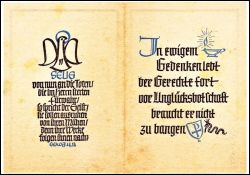 SELIG
von nun an die Toten/
die im Herrn sterben
fürwahr/
so spricht der Geist/
sie sollen ausruhen
von ihren Mühen/
denn ihre Werke
folgen ihnen nach/
In ewigem
Gedenken lebt
der Gerechte fort
vor Unglücksbotschaft
braucht er nicht
zu bangen